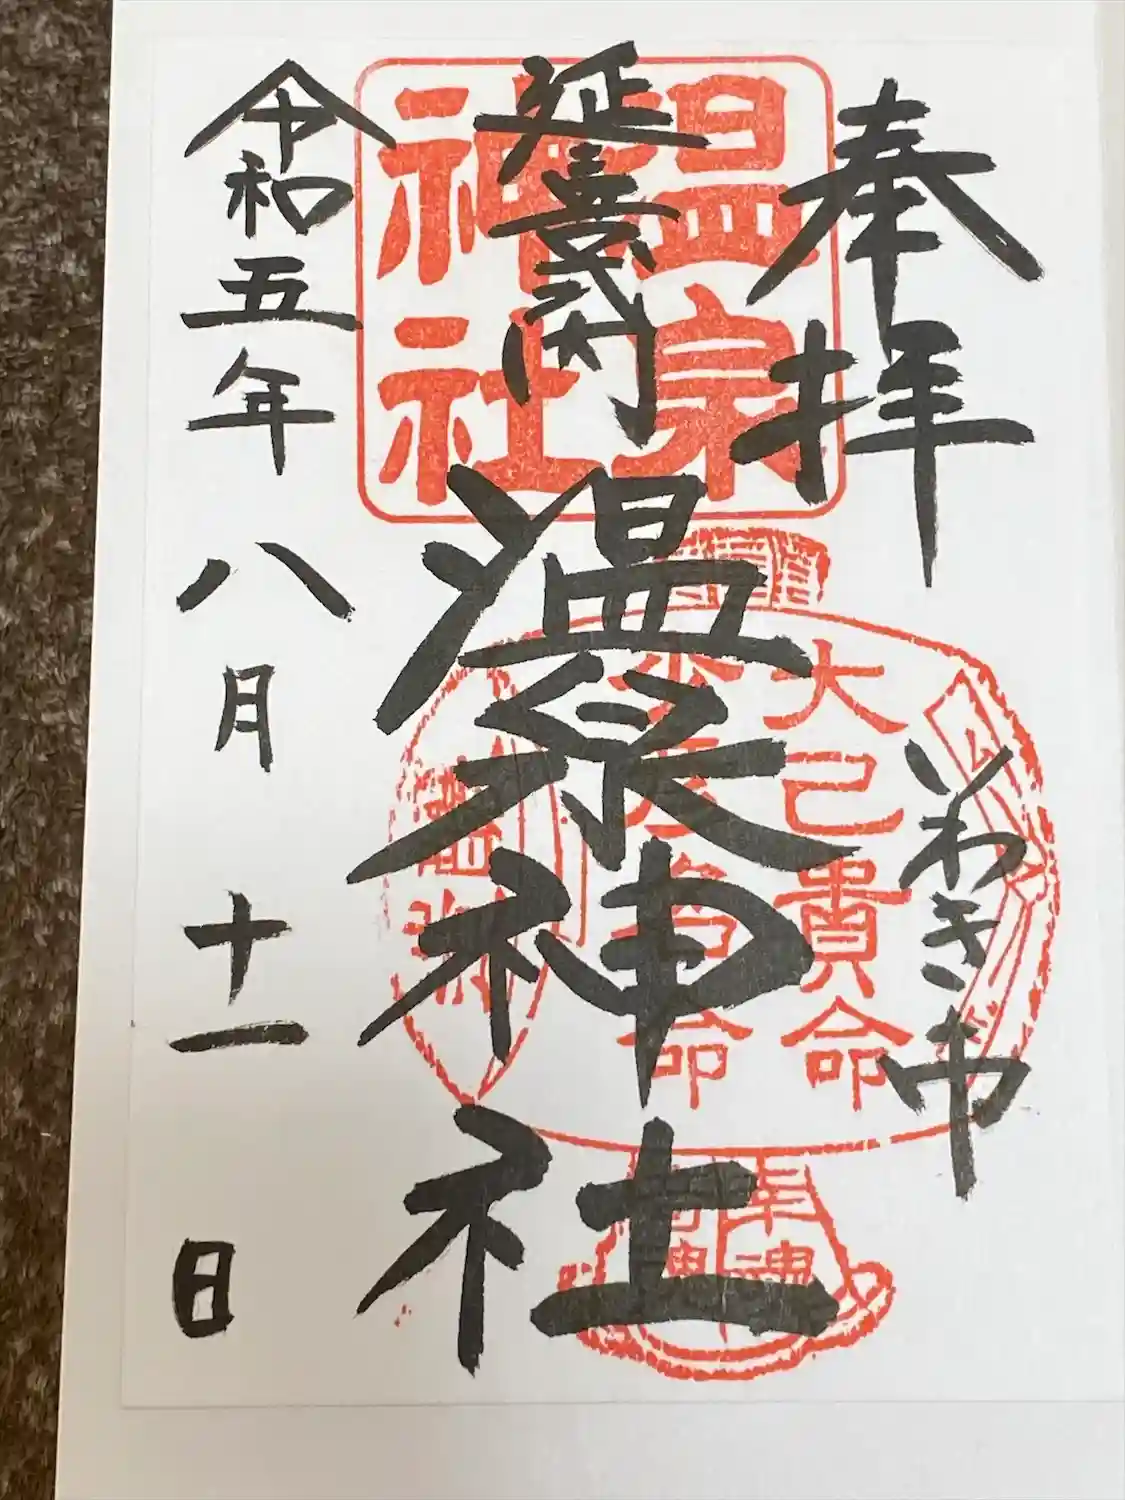 奉拝
いわき市
延喜式内
温泉神社
令和五年八月十一日
温泉
神社
大己貴命
少彦名命
幸魂